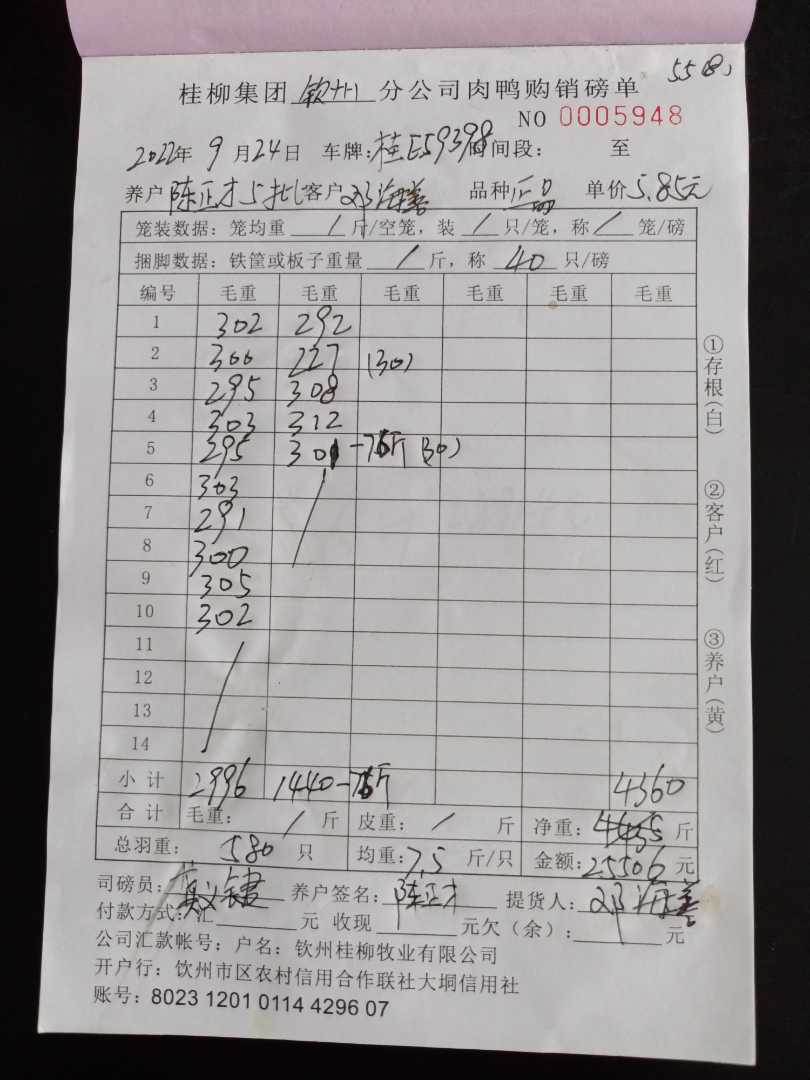 558
桂柳集团 钦州 分公司肉鸭购销磅单
NO 0005948
2022年 9 月 24 日 车牌: 桂E59398 时间段: 至
养户 陈正才5批 客户 邓海善 品种 正品 单价 5.85元
笼装数据: 笼均重 / 斤/空笼, 装 / 只/笼, 称 / 笼/磅
捆脚数据: 铁筐或板子重量 / 斤, 称 40 只/磅
编号 毛重 毛重 毛重 毛重 毛重 毛重
1 302 292
2 300 227 (30)
3 295 308
4 303 312
5 295 301 -76斤 (30)
6 303
7 291
8 300
9 305
10 302
11
12
13
14
小计 2996 1440-76斤 4360
合计 毛重: / 斤 皮重: / 斤 净重: 斤
总羽重: 580 只 均重: 7.5 斤/只 金额: 25506 元
司磅员: 养户签名: 陈正才 提货人: 邓海善
付款方式: 汇 元 收现 元 欠(余): 元
公司汇款帐号: 户名: 钦州桂柳牧业有限公司
开户行: 钦州市区农村信用合作联社大垌信用社
账号: 8023 1201 0114 4296 07
①存根(白)
②客户(红)
③养户(黄)